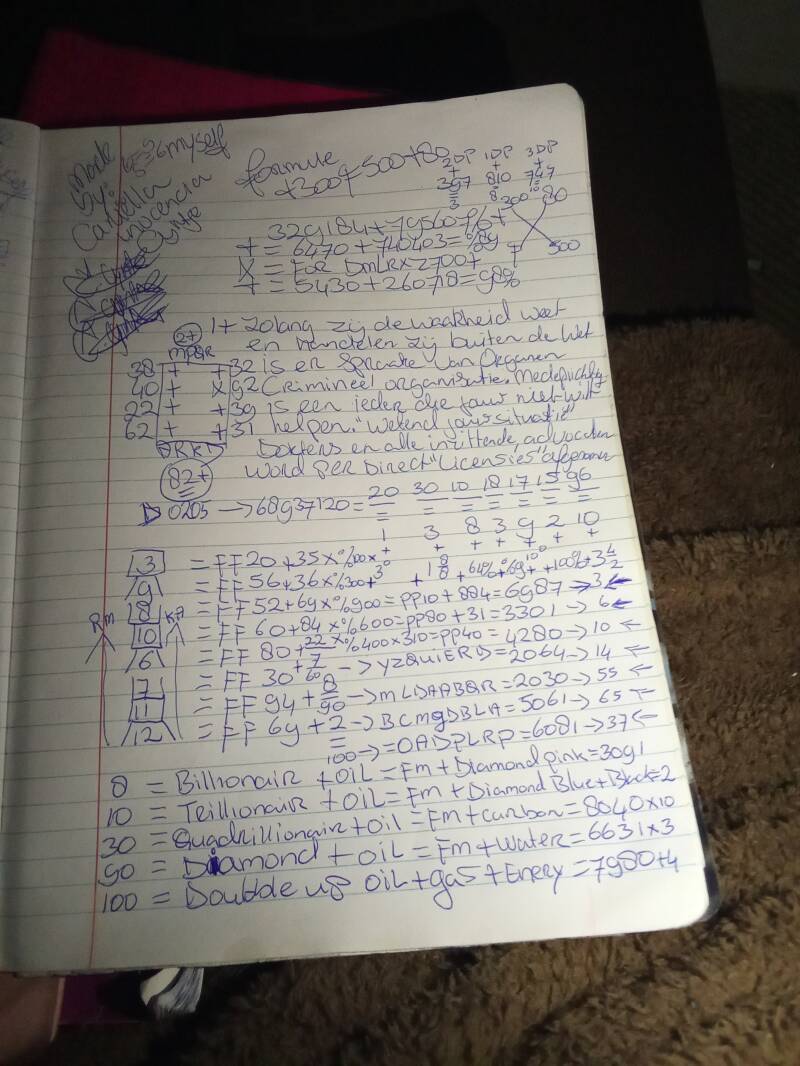 Made
By:
myself
Formule
+300g - 500+80
2DP 1DP 3DP
+ + +
397 810 747
= = =
3 8 10
200 80
T 500
329184+79560%+
+ = 6470+740403=%89
X = FOR DMLRX2700+
+ = 5430+260718=98%
1+ Zolang zij de waarheid weet
en handelen zij buiten de Wet
2+
MPQR
38 + +32 is er Sprake van Organen
40 + X92 Crimineel organisatie. Medeplichtig
22 + +39 is een ieder die jouw niet wilt
62 + +31 helpen. "Wetend jouw situatie"
DRKD Dokters en alle inzittende, advocaten
82+ word per Direct "Licensies" afgenomen
D 0205 → 68937120 = 20 30 10 18 17 15 96
= = = = = = =
1 3 8 3 9 2 10
+ + + + + + +
3 = FF20+35x%100x+
9 = FF 56+36x%300+3°
18 = FF52+69x%900=PP10+884=6987→3←
10 = FF 60+84x%600=PP80+31=3301→6←
6 = FF 80+22/7x%400x310=PP40=4280→10←
7 = FF 30+60→YZQUIERD=2064→14←
11 = FF 94+8/90→MLDAABQR=2030→55←
12 = FF 69+2→BCMGDBLA=5061→65←
100→=OADPLRP=6081→37←
RM KA
8 = Billionair +OIL=Fm+Diamond pink=3091
10 = Trillionair +OIL=Fm+Diamond Blue+Black=2
30 = Quadrillionair+Oil=Fm+carbon=8040x10
90 = Diamond +OIL=Fm+Water=6631x3
100 = Doubble up OIL+gas+Enery=7980+4